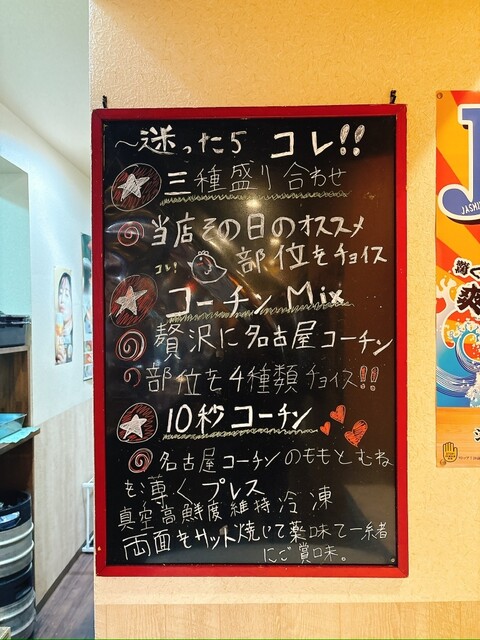 ~迷ったら コレ!!
三種盛り合わせ
当店その日のオススメ
コレ! 部位をチョイス
コーチンMix
贅沢に名古屋コーチン
部位を4種類チョイス!!
10秒コーチン
名古屋コーチンのももとむね
を薄くプレス
真空高鮮度維持冷凍
両面をサット焼いて薬味で一緒
にご賞味。
JASMI
爽